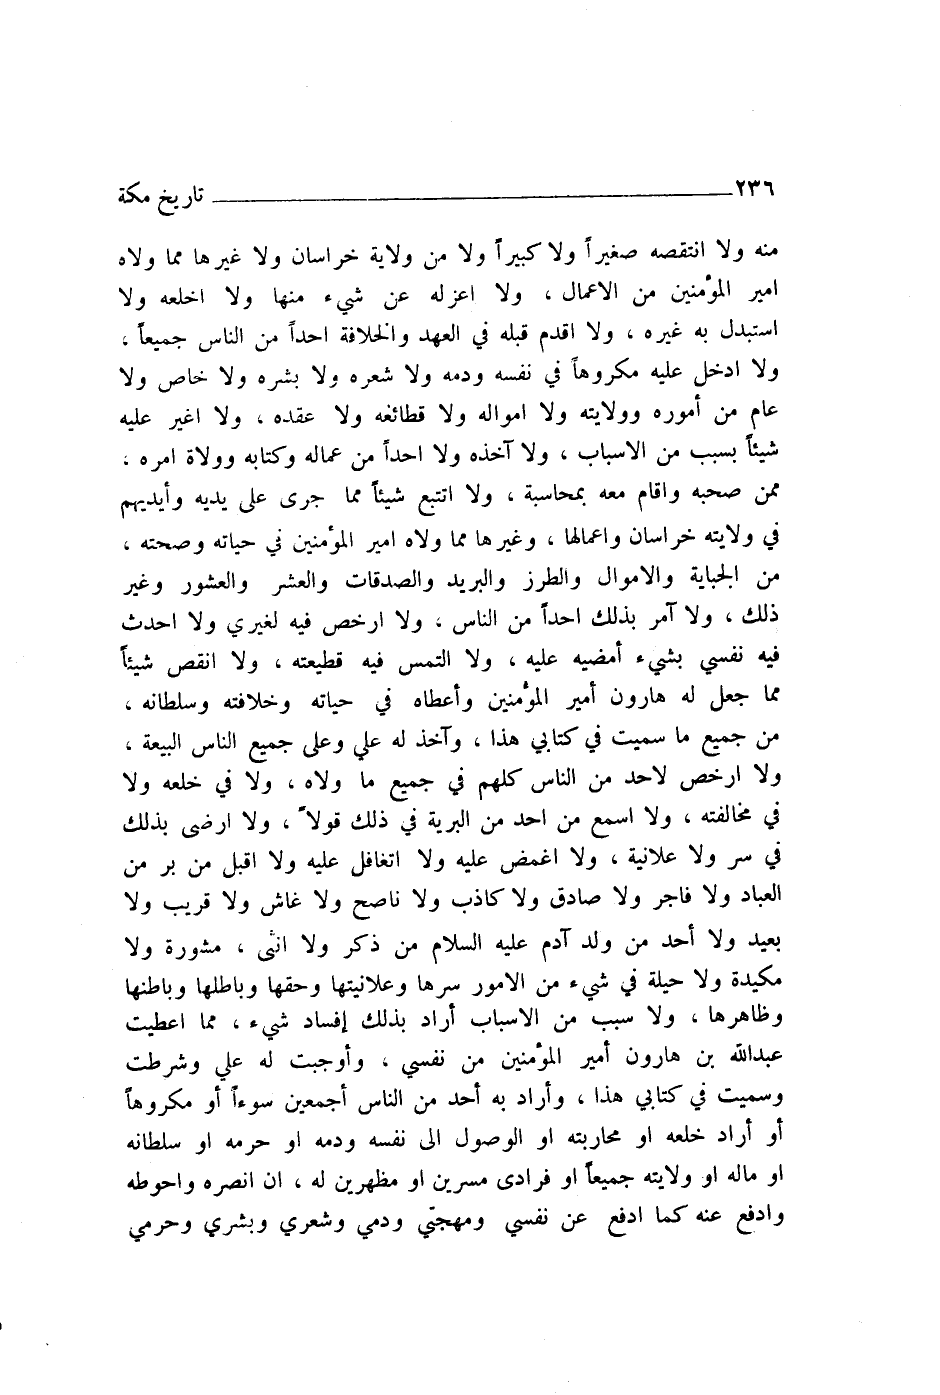 ٢٣٦ تاريخ مكة
منه ولا انتقصه صغيراً ولا كبيراً ولا من ولاية خراسان ولا غيرها مما ولاه
امير المؤمنين من الاعمال ، ولا اعزله عن شيء منها ولا اخلعه ولا
استبدل به غيره ، ولا اقدم قبله في العهد والخلافة احداً من الناس جميعاً ،
ولا ادخل عليه مكروهاً في نفسه ودمه ولا شعره ولا بشره ولا خاص ولا
عام من أموره وولايته ولا امواله ولا قطائعه ولا عقده ، ولا اغير عليه
شيئاً بسبب من الاسباب ، ولا آخذه ولا احداً من عماله وكتابه وولاة امره ،
ممن صحبه واقام معه بمحاسبة ، ولا اتتبع شيئاً مما جرى على يديه وأيديهم
في ولايته خراسان واعمالها ، وغيرها مما ولاه امير المؤمنين في حياته وصحته ،
من الجباية والاموال والطرز والبريد والصدقات والعشر والعشور وغير
ذلك ، ولا آمر بذلك احداً من الناس ، ولا ارخص فيه لغيري ولا احدث
فيه نفسي بشيء أمضيه عليه ، ولا التمس فيه قطيعته ، ولا انقص شيئاً
مما جعل له هارون أمير المؤمنين وأعطاه في حياته وخلافته وسلطانه ،
من جميع ما سميت في كتابي هذا ، وآخذ له علي وعلى جميع الناس البيعة ،
ولا ارخص لاحد من الناس كلهم في جميع ما ولاه ، ولا في خلعه ولا
في مخالفته ، ولا اسمع من احد من البرية في ذلك قولاً ، ولا ارضى بذلك
في سر ولا علانية ، ولا اغمض عليه ولا اتغافل عليه ولا اقبل من بر من
العباد ولا فاجر ولا صادق ولا كاذب ولا ناصح ولا غاش ولا قريب ولا
بعيد ولا أحد من ولد آدم عليه السلام من ذكر ولا انثى ، مشورة ولا
مكيدة ولا حيلة في شيء من الامور سرها وعلانيتها وحقها وباطلها وباطنها
وظاهرها ، ولا سبب من الاسباب أراد بذلك إفساد شيء ، مما اعطيت
عبدالله بن هارون أمير المؤمنين من نفسي ، وأوجبت له علي وشرطت
وسميت في كتابي هذا ، وأراد به أحد من الناس أجمعين سوءاً أو مكروهاً
أو أراد خلعه او محاربته او الوصول الى نفسه ودمه او حرمه او سلطانه
او ماله او ولايته جميعاً او فرادى مسرين او مظهرين له ، ان انصره واحوطه
وادفع عنه كما ادفع عن نفسي ومهجتي ودمي وشعري وبشري وحرمي